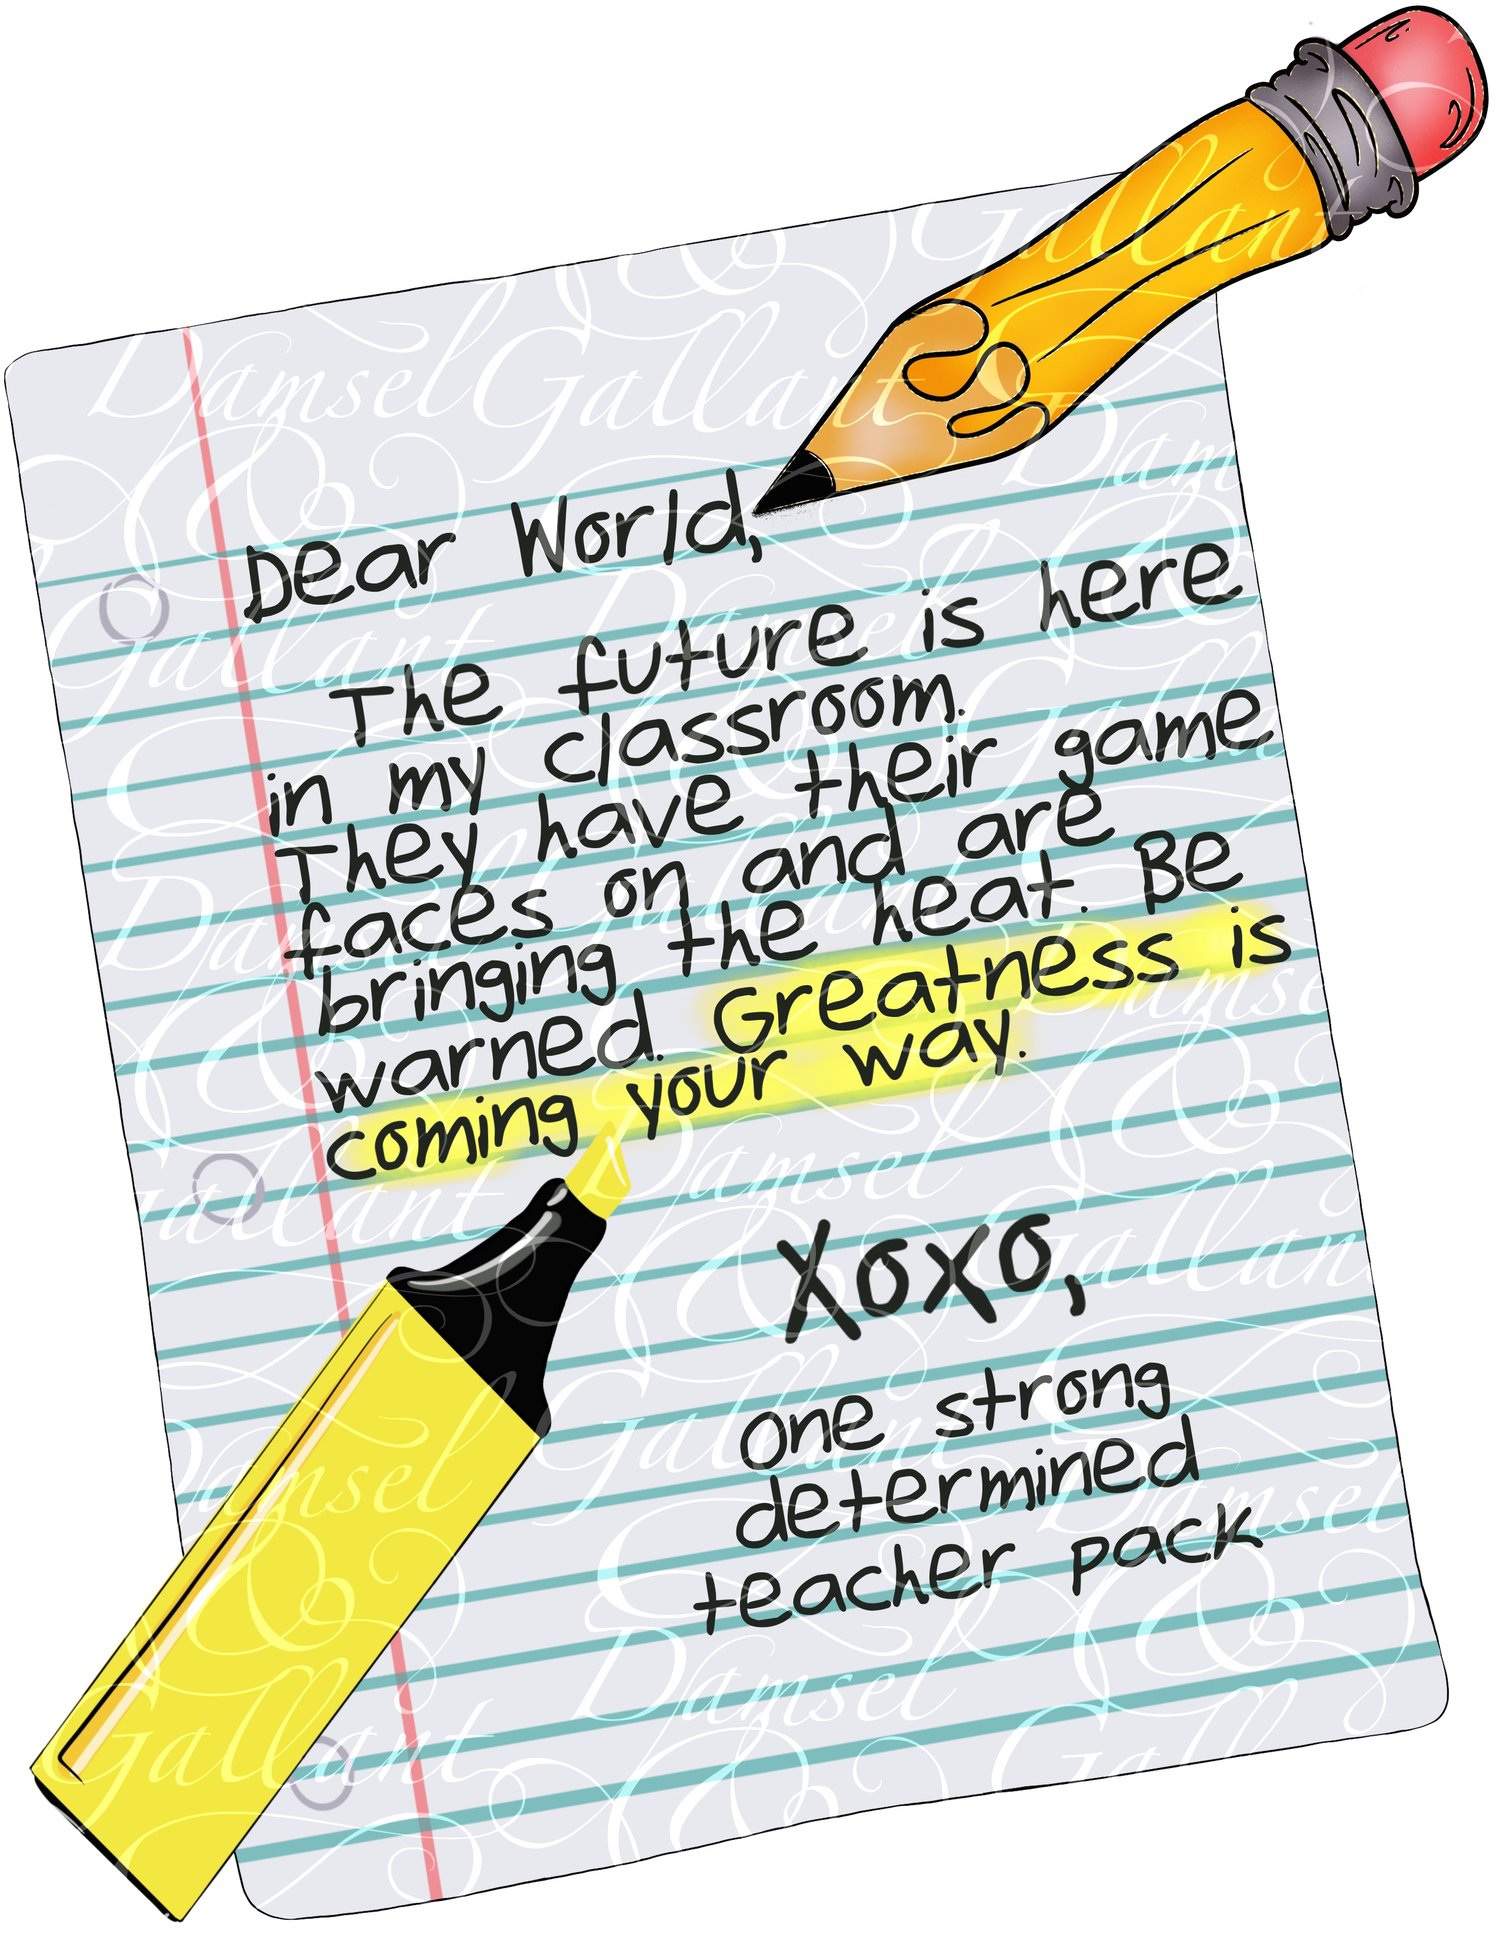 Dear World,
The future is here
in my classroom.
They have their game
faces on and are
bringing the heat. Be
warned. Greatness is
coming your way.
Xoxo,
one strong
determined
teacher pack
Damsel Gallant